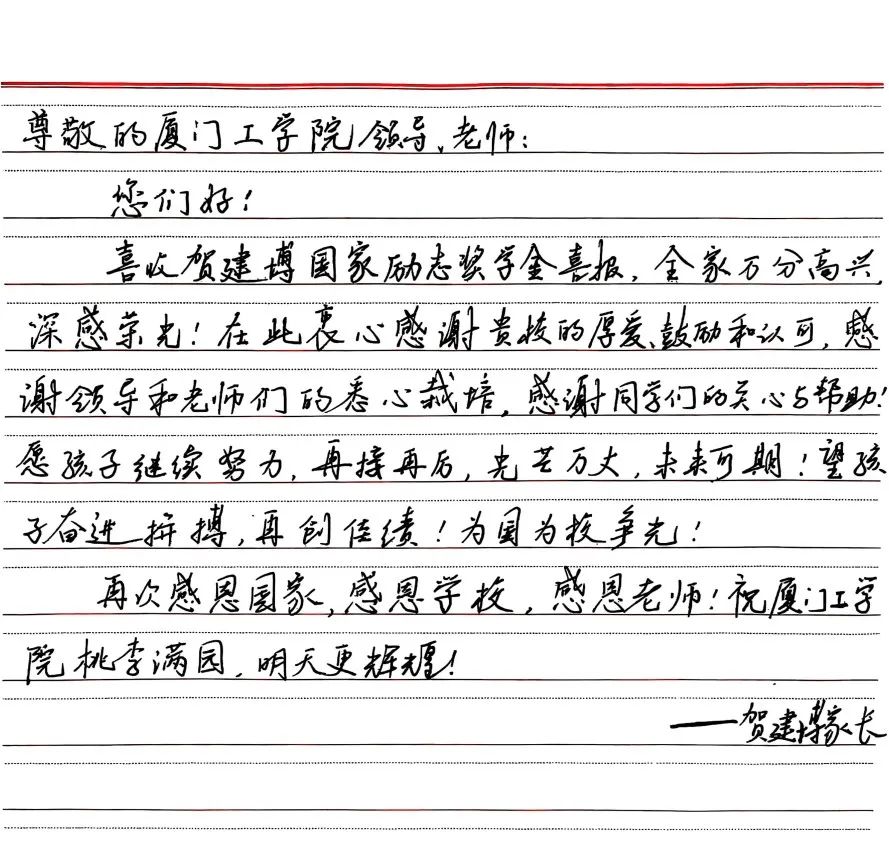 尊敬的厦门工学院领导、老师：
您们好！
喜收贺建博国家励志奖学金喜报，全家万分高兴，
深感荣光！在此衷心感谢贵校的厚爱、鼓励和认可，感
谢领导和老师们的悉心栽培，感谢同学们的关心与帮助！
愿孩子继续努力，再接再厉，光芒万丈，未来可期！望孩
子奋进拼搏，再创佳绩！为国为校争光！
再次感恩国家，感恩学校，感恩老师！祝厦门工学
院桃李满园，明天更辉煌！
——贺建博家长